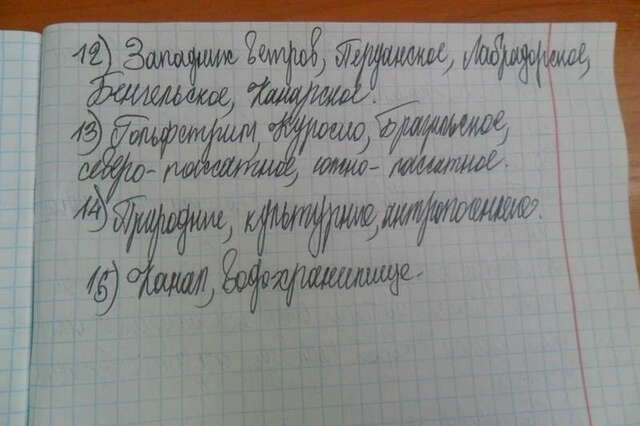 12) Западних ветров, Перуанское, Лабрадорское,
Бенгельское, Канарское.
13) Гольфстрим, Куросио, Бразильское,
северо-пассатное, южно-пассатное.
14) Природные, культурные, антропогенные.
15) Канал, водохранилище.